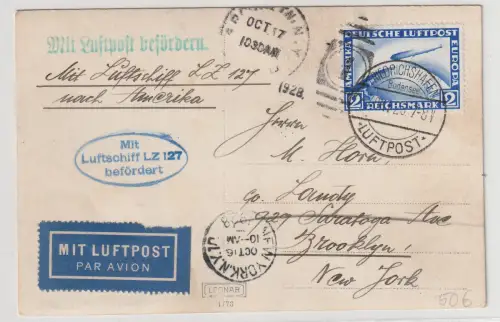 BROOKLYN, N.Y.
OCT 17
1030AM
1928
Mit Luftpost befördern.
Mit Luftschiff LZ 127
nach Amerika
DEUTSCHE LUFTPOST
AMERIKA
EUROPA
2 REICHSMARK 2
FRIEDRICHSHAFEN
Bodensee
*LUFTPOST*
Mit
Luftschiff LZ 127
befördert
Herrn
M. Horn,
c/o Landy
929 Saratoga Ave
Brooklyn,
New York
NEW YORK, N.Y.
OCT 16
10-AM
1928
MIT LUFTPOST
PAR AVION
LEONAR
506